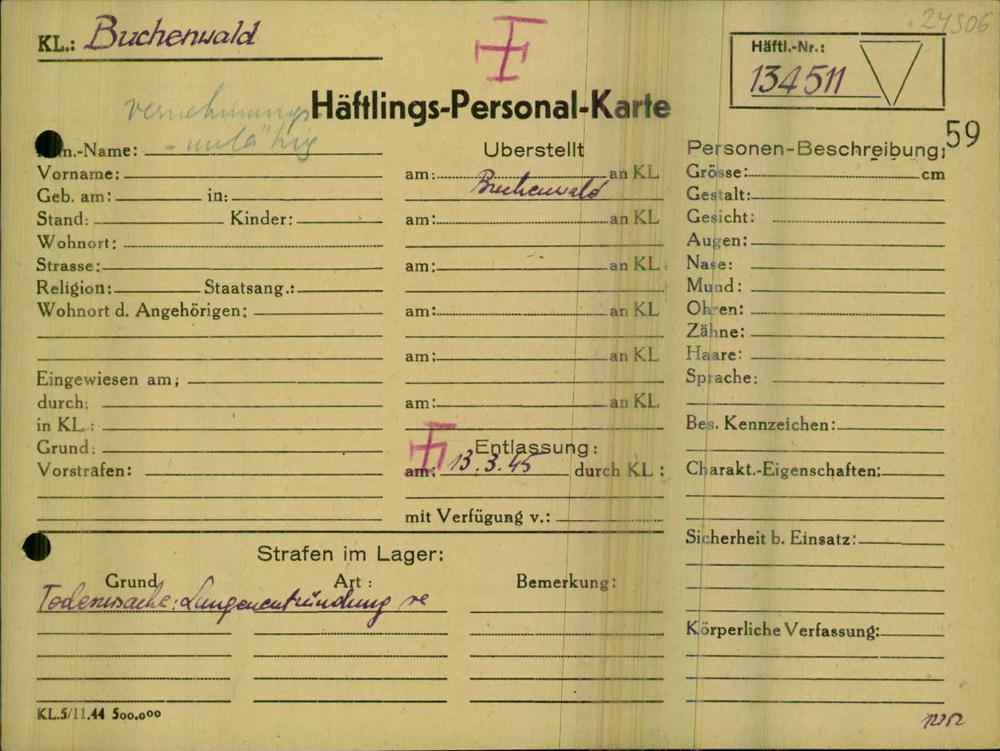 24506
KL.: Buchenwald
Häftl.-Nr.:
134511
Häftlings-Personal-Karte
vernehmungs-
-unfähig
59
-Name:
Vorname:
Geb. am: in:
Stand: Kinder:
Wohnort:
Strasse:
Religion: Staatsang.:
Wohnort d. Angehörigen:
Eingewiesen am:
durch:
in KL.:
Grund:
Vorstrafen:
Uberstellt
am: an KL
Buchenwald
am: an KL
am: an KL
am: an KL
am: an KL
am: an KL
Entlassung:
am: 13.3.45 durch KL:
mit Verfügung v.:
Personen-Beschreibung:
Grösse: cm
Gestalt:
Gesicht:
Augen:
Nase:
Mund:
Ohren:
Zähne:
Haare:
Sprache:
Bes. Kennzeichen:
Charakt.-Eigenschaften:
Sicherheit b. Einsatz:
Körperliche Verfassung:
Strafen im Lager:
Grund Art: Bemerkung:
Todesursache: Lungenentzündung re
KL.5/11.44 500.000